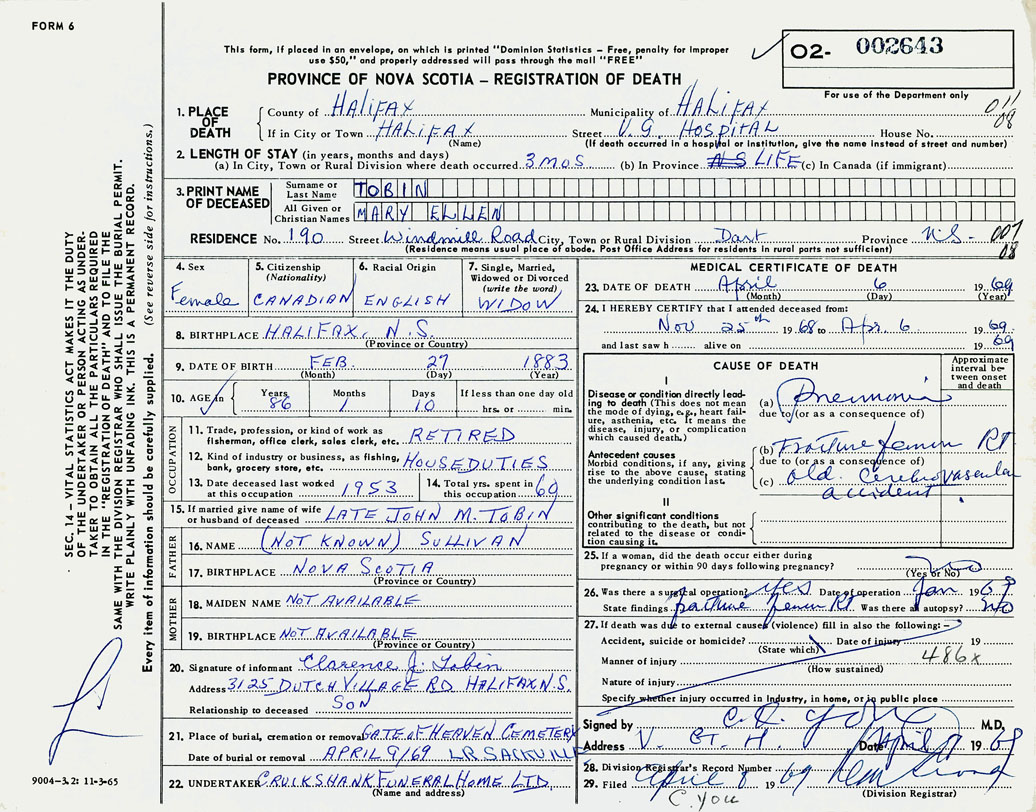 FORM 6
This form, if placed in an envelope, on which is printed "Dominion Statistics – Free, penalty for improper
use $50," and properly addressed will pass through the mail "FREE"
O2- 002643
For use of the Department only
PROVINCE OF NOVA SCOTIA – REGISTRATION OF DEATH
011
08
1. PLACE OF DEATH
County of HALIFAX Municipality of HALIFAX
If in City or Town HALIFAX Street V.G. HOSPITAL House No.
(Name) (If death occurred in a hospital or Institution, give the name instead of street and number)
2. LENGTH OF STAY (in years, months and days)
(a) In City, Town or Rural Division where death occurred 3 MOS (b) In Province NS LIFE (c) In Canada (if immigrant)
3. PRINT NAME OF DECEASED
Surname or Last Name TOBIN
All Given or Christian Names MARY ELLEN
RESIDENCE No. 190 Street Windmill Road City, Town or Rural Division Dart Province N.S. 001
08
(Residence means usual place of abode. Post Office Address for residents in rural parts not sufficient)
4. Sex Female
5. Citizenship (Nationality) CANADIAN
6. Racial Origin ENGLISH
7. Single, Married, Widowed or Divorced (write the word) WIDOW
8. BIRTHPLACE HALIFAX, N.S.
(Province or Country)
9. DATE OF BIRTH FEB. 27 1883
(Month) (Day) (Year)
10. AGE in Years 86 Months 1 Days 10 If less than one day old hrs. or min.
OCCUPATION
11. Trade, profession, or kind of work as fisherman, office clerk, sales clerk, etc. RETIRED
12. Kind of industry or business, as fishing, bank, grocery store, etc. HOUSEDUTIES
13. Date deceased last worked at this occupation 1953
14. Total yrs. spent in this occupation 69
15. If married give name of wife or husband of deceased LATE JOHN M. TOBIN
FATHER
16. NAME (NOT KNOWN) SULLIVAN
17. BIRTHPLACE NOVA SCOTIA
(Province or Country)
MOTHER
18. MAIDEN NAME NOT AVAILABLE
19. BIRTHPLACE NOT AVAILABLE
(Province or Country)
20. Signature of informant Clarence J. Tobin
Address 3125 DUTCH VILLAGE RD HALIFAX N.S.
Relationship to deceased SON
21. Place of burial, cremation or removal GATE OF HEAVEN CEMETERY
Date of burial or removal APRIL 9/69 LR. SACKVILLE
22. UNDERTAKER CRUIKSHANK FUNERAL HOME LTD.
(Name and address)
MEDICAL CERTIFICATE OF DEATH
23. DATE OF DEATH April 6 1969
(Month) (Day) (Year)
24. I HEREBY CERTIFY that I attended deceased from:
Nov 25th 1968 to Apr. 6 1969
and last saw h alive on 1969
CAUSE OF DEATH
Approximate interval between onset and death
I
Disease or condition directly leading to death (This does not mean the mode of dying, e.g., heart failure, asthenia, etc. It means the disease, injury, or complication which caused death.)
(a) Pneumonia
due to (or as a consequence of)
Antecedent causes
Morbid conditions, if any, giving rise to the above cause, stating the underlying condition last.
(b) Fracture femur RT
due to (or as a consequence of)
(c) old. Cerebrovascular
accident
II
Other significant conditions
contributing to the death, but not related to the disease or condition causing it.
25. If a woman, did the death occur either during
pregnancy or within 90 days following pregnancy? no
(Yes or No)
26. Was there a surgical operation? yes Date of operation Jan 1969
State findings fracture femur RT Was there an autopsy? no
27. If death was due to external causes (violence) fill in also the following: –
Accident, suicide or homicide? Date of injury 19
(State which)
Manner of injury 486x
(How sustained)
Nature of injury
Specify whether injury occurred in Industry, in home, or in public place
Signed by M.D.
Address V. G. H. Date April 1969
28. Division Registrar's Record Number
29. Filed April 8 1969
(Division Registrar)
C. YOU
SEC. 14 – VITAL STATISTICS ACT MAKES IT THE DUTY
OF THE UNDERTAKER OR PERSON ACTING AS UNDER-
TAKER TO OBTAIN ALL THE PARTICULARS REQUIRED
IN THE "REGISTRATION OF DEATH" AND TO FILE THE
SAME WITH THE DIVISION REGISTRAR WHO SHALL ISSUE THE BURIAL PERMIT.
WRITE PLAINLY WITH UNFADING INK. THIS IS A PERMANENT RECORD.
Every item of information should be carefully supplied. (See reverse side for instructions.)
9004–3.2: 11-3-65